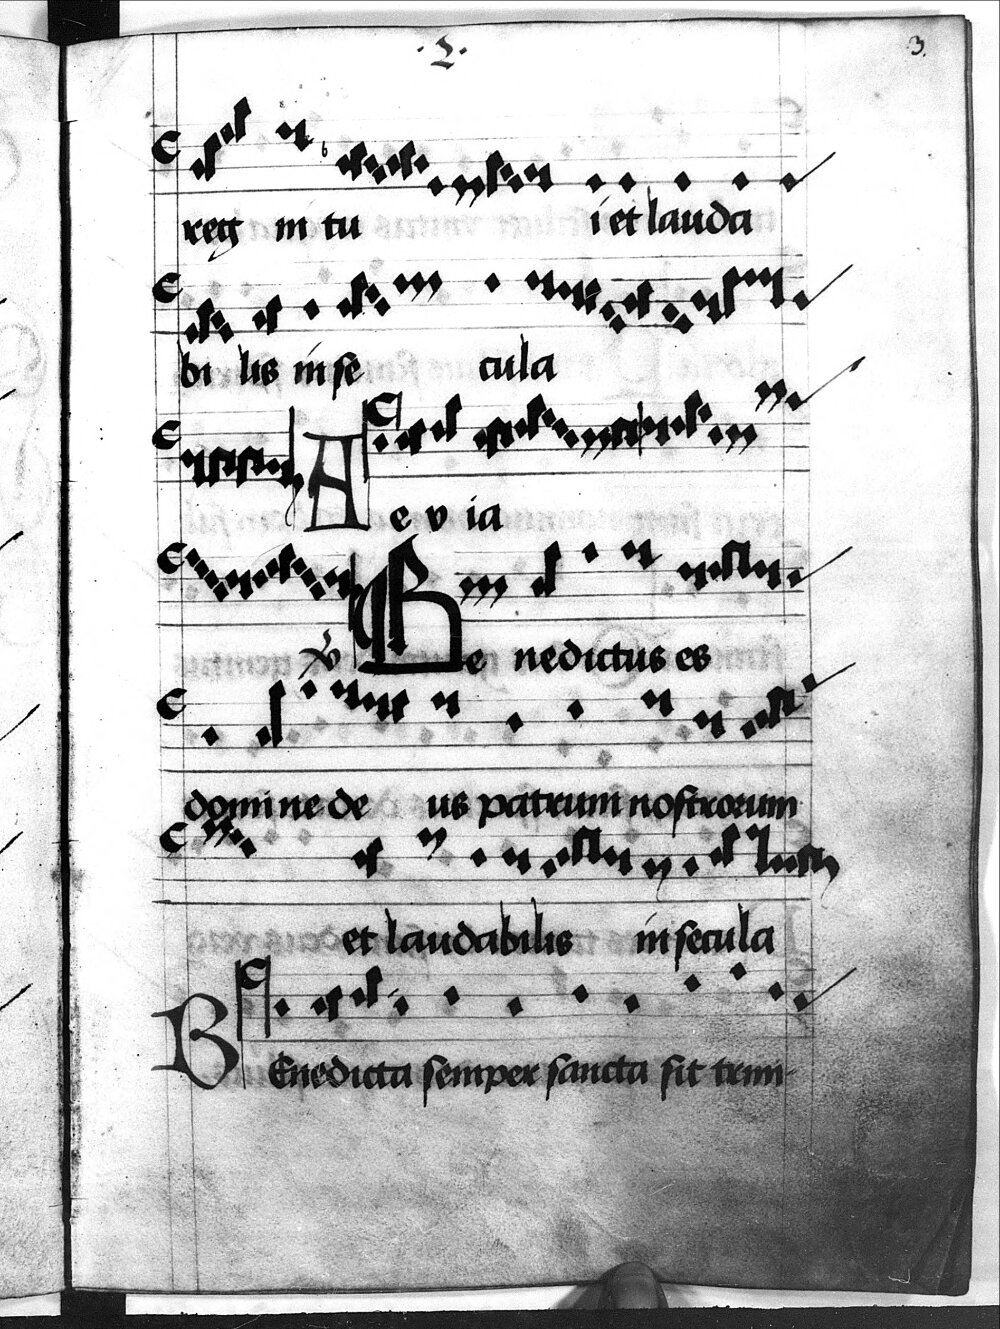 ·2·
3
regni tui et lauda
bilis in secula
Aevia
℣ Benedictus es
domine deus patrum nostrorum
et laudabilis in secula
BEnedicta semper sancta sit trini-